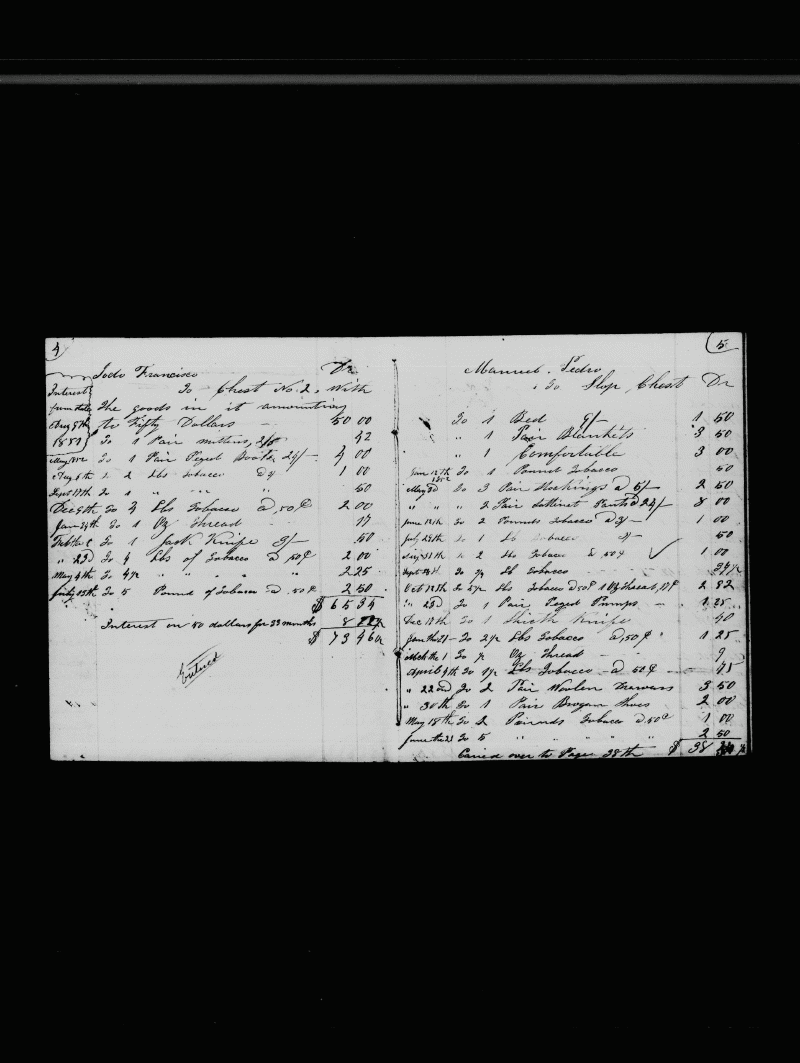 4
Jodo Francisco Dr
Interest To Chest No. 2. With
from date the goods in it amounting
Aug 9th to Fifty Dollars 50 00
1851 To 1 Pair mittins, 42
May To 1 Pair Peged Boots 24/- 4 00
Aug 6th " 2 Lbs Tobacco 1 00
Sept 17th To 1 " " " 50
Dec 9th To 4 Lbs Tobacco a ,50¢ 2 00
Jan 24th To 1 Oz Thread 17
To 1 Jack Knife 3/- 50
" 23d To 4 Lbs of Tobacco a 50¢ 2 00
May 4th To 4½ " " " " 2 25
July To 5 Pound of Tobacco a .50¢ 2 50
$ 65 34
Interest on 50 dollars for 33 months 8
$ 73 46
Entered
5
Manuel. Pedro
To Slop Chest Dr
To 1 Bed 9/- 1 50
" 1 Pair Blankets 3 50
" 1 Comfortible 3 00
June 12th 1852 To 1 Pound Tobacco 50
May 3d To 3 Pair Stockings a 5/- 2 50
" " " 2 Pair Sattinet Pants a 24/- 8 00
June 12th to 2 Pounds Tobacco a 3/- 1 00
July 29th to 1 Lb Tobacco 3/- 50
to 2 Lbs Tobacco a 50¢ 1 00
Sept To ½ Lb Tobacco
Oct To 5½ Lbs Tobacco a 50¢ 1 Oz Thread, 2 82
" 23d To 1 Pair Peged Pumps 1 25
Dec To 1 Sheeth Knife 40
Jan the 21 - To 2½ Lbs Tobacco a ,50¢ 1 25
Mch the 1 To ½ Oz Thread 9
April 9th To 1½ Lbs Tobacco a 50¢ 75
" 22nd To 2 Pair Woolen Drawars 3 50
" 30th To 1 Pair Brogan Shoes 2 00
May 18th To 2 Pounds Tobacco a 50¢ 1 00
June the 23 To 5 " " " " " 2 50
Caried over to Page 38th $ 38